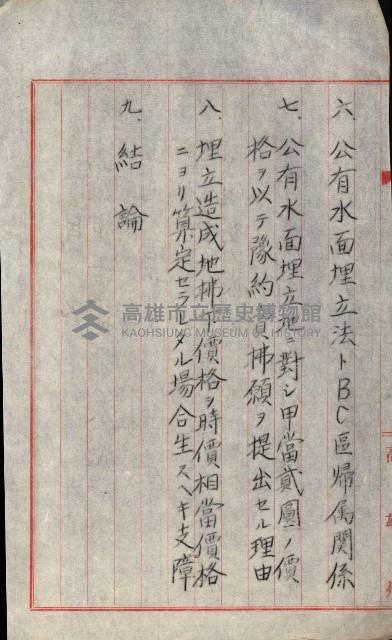 六、公有水面埋立法トBC區帰属関係
七、公有水面埋立地ニ對シ甲當貳圓ノ價
格ヲ以テ豫約賣拂願ヲ提出セル理由
八、埋立造成地拂下價格ヲ時價相當價格
ニヨリ算定セラレタル場合生スヘキ支障
九、結論
高雄市立歷史博物館
KAOHSIUNG MUSEUM OF HISTORY
高雄